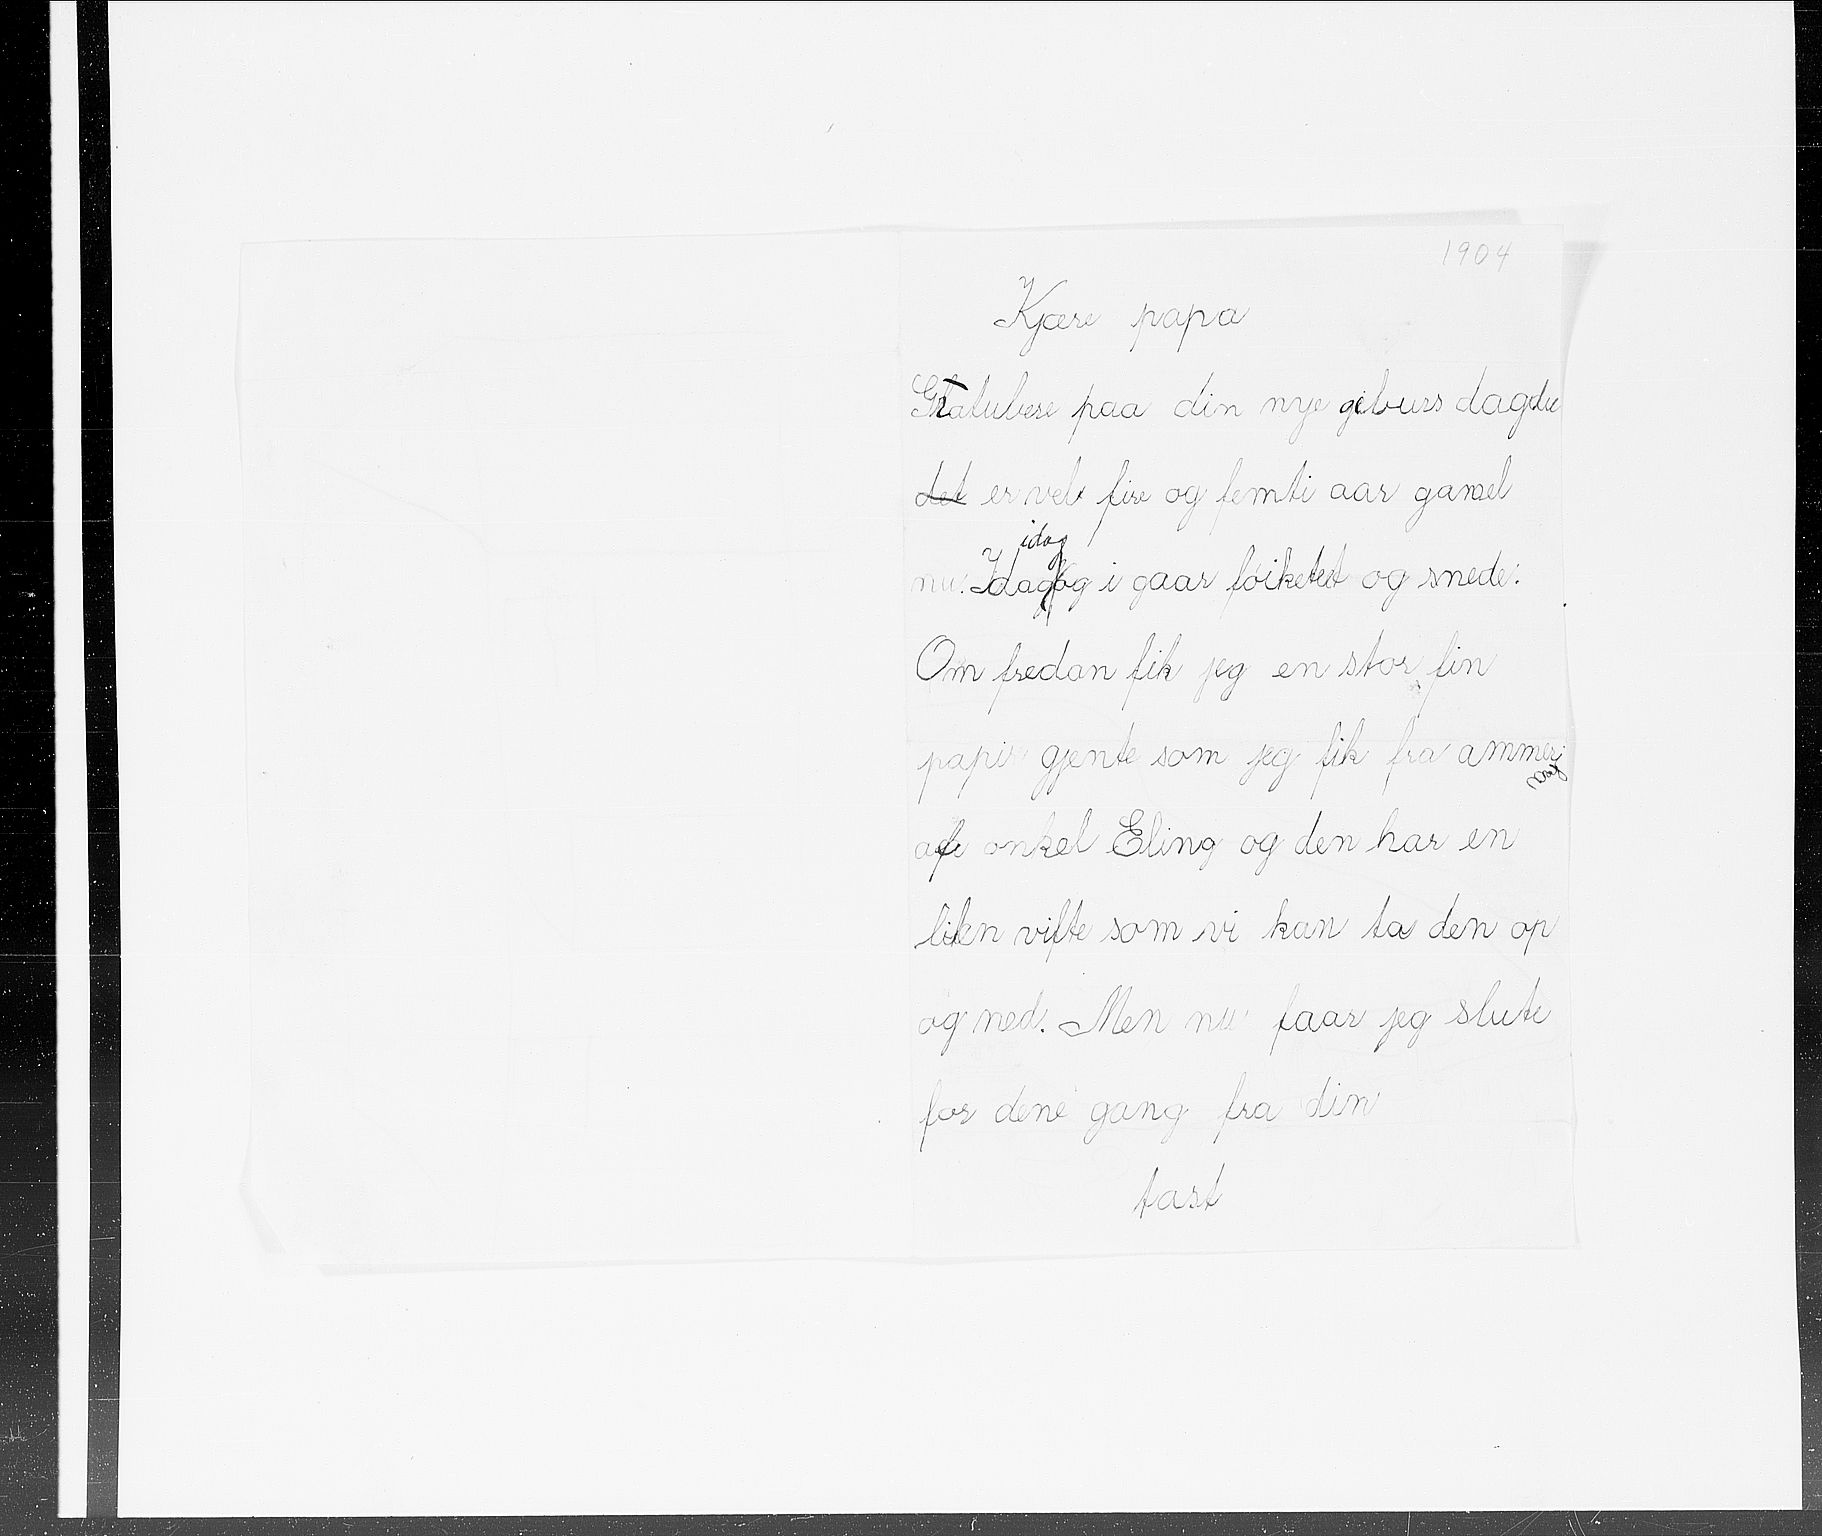 1904
Kjære papa
Gratulere paa din nye geburs dag du
det er vel fire og femti aar gamel
idag
nu. Idag og i gaar føiketet og snede.
Om fredan fik jeg en stor fin
papir gjente som jeg fik fra ammer
af onkel Eling og den har en
liten vifte som vi kan ta den op
og ned. Men nu faar jeg slute
for dene gang fra din
tast